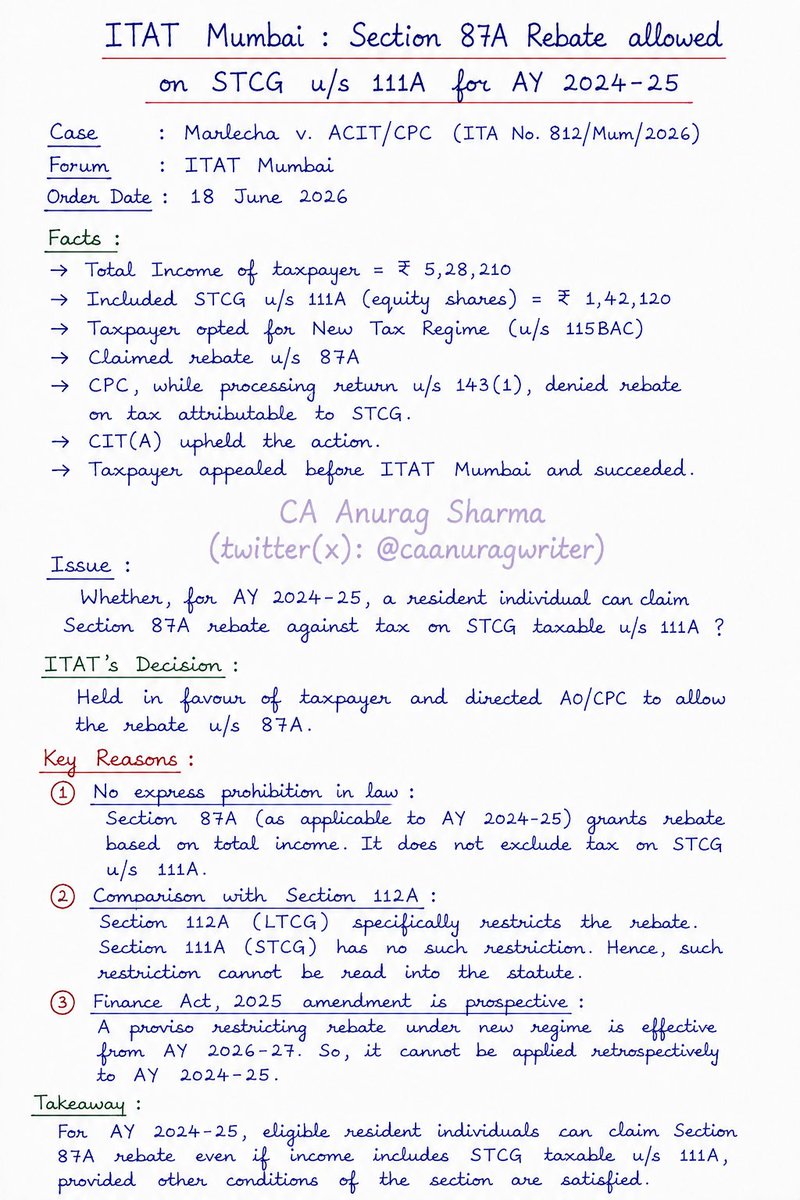 ITAT Mumbai : Section 87A Rebate allowed
on STCG u/s 111A for AY 2024-25
Case : Marlecha v. ACIT/CPC (ITA No. 812/Mum/2026)
Forum : ITAT Mumbai
Order Date : 18 June 2026
Facts :
→ Total Income of taxpayer = ₹ 5,28,210
→ Included STCG u/s 111A (equity shares) = ₹ 1,42,120
→ Taxpayer opted for New Tax Regime (u/s 115BAC)
→ Claimed rebate u/s 87A
→ CPC, while processing return u/s 143(1), denied rebate
on tax attributable to STCG.
→ CIT(A) upheld the action.
→ Taxpayer appealed before ITAT Mumbai and succeeded.
CA Anurag Sharma
(twitter(x): @caanuragwriter)
Issue :
Whether, for AY 2024-25, a resident individual can claim
Section 87A rebate against tax on STCG taxable u/s 111A ?
ITAT's Decision :
Held in favour of taxpayer and directed AO/CPC to allow
the rebate u/s 87A.
Key Reasons :
① No express prohibition in law :
Section 87A (as applicable to AY 2024-25) grants rebate
based on total income. It does not exclude tax on STCG
u/s 111A.
② Comparison with Section 112A :
Section 112A (LTCG) specifically restricts the rebate.
Section 111A (STCG) has no such restriction. Hence, such
restriction cannot be read into the statute.
③ Finance Act, 2025 amendment is prospective :
A proviso restricting rebate under new regime is effective
from AY 2026-27. So, it cannot be applied retrospectively
to AY 2024-25.
Takeaway :
For AY 2024-25, eligible resident individuals can claim Section
87A rebate even if income includes STCG taxable u/s 111A,
provided other conditions of the section are satisfied.